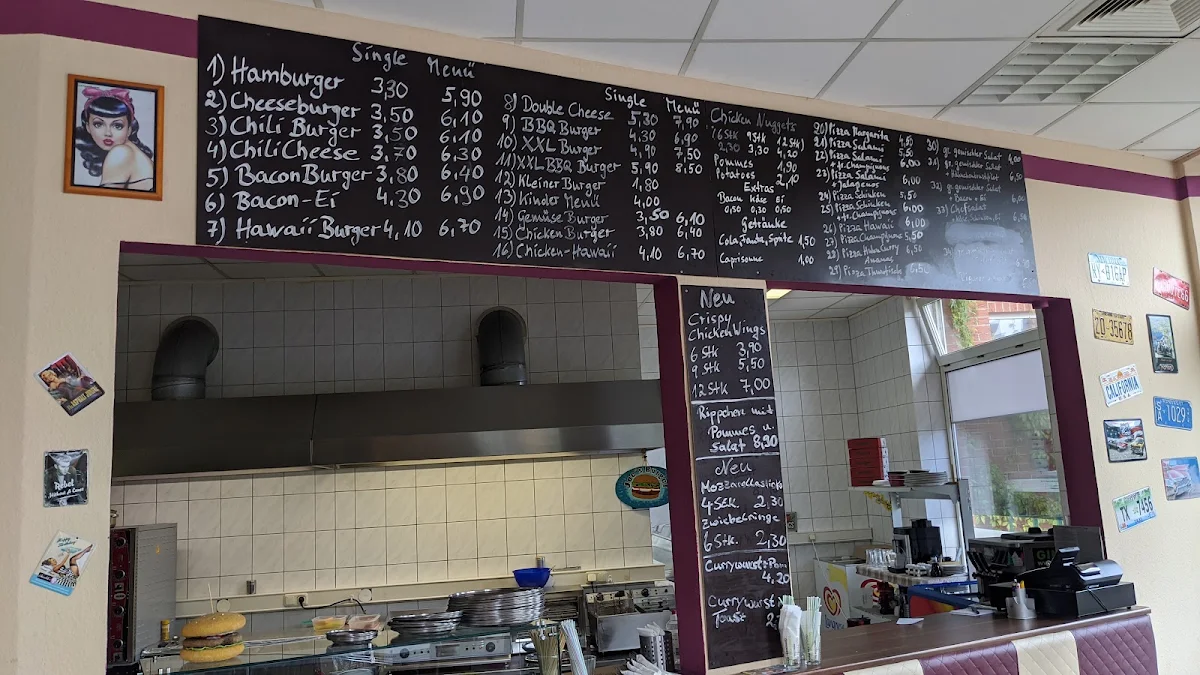 Single Menü
1) Hamburger 3,30 5,90
2) Cheeseburger 3,50 6,10
3) Chili Burger 3,50 6,10
4) Chili Cheese 3,70 6,30
5) Bacon Burger 3,80 6,40
6) Bacon-Ei 4,30 6,90
7) Hawaii Burger 4,10 6,70
Single Menü
8) Double Cheese 5,30 7,90
9) BBQ Burger 4,30 6,90
10) XXL Burger 4,90 7,50
11) XXL BBQ Burger 5,90 8,50
12) Kleiner Burger 1,80
13) Kinder Menü 4,00
14) Gemüse Burger 3,50 6,10
15) Chicken Burger 3,80 6,40
16) Chicken-Hawaii 4,10 6,70
Chicken Nuggets
6 Stk 9 Stk 12 Stk
2,30 3,30 4,20
Pommes 1,90
Potatoes 2,10
Extras
Bacon Käse Ei
0,50 0,30 0,50
Getränke
Cola, Fanta, Sprite 1,50
Caprisonne 1,00
20) Pizza Margarita 4,50
21) Pizza Salami 5,00
22) Pizza Salami
+ fr. Champignons
23) Pizza Salami 6,00
+ Jalapenos
24) Pizza Schinken 5,50
25) Pizza Schinken
+ fr. Champignons 6,00
26) Pizza Hawaii 6,00
27) Pizza Champignons 5,50
28) Pizza Huhn Curry 6,50
Ananas
29) Pizza Thunfisch 6,50
30) gr. gemischter Salat 4,00
31) gr. gemischter Salat
6,50
32) gr. gemischter Salat
+ Bacon + Ei 6,00
33) Chefsalat
Neu
Crispy
Chicken Wings
6 Stk 3,90
9 Stk 5,50
12 Stk 7,00
Rippchen mit
Pommes u.
Salat 8,90
Neu
Mozzarellasticks
4 Stk. 2,30
Zwiebelringe
6 Stk. 2,30
Currywurst + Pom
4,20
Currywurst
Toast
Rebel
20-35678
CALIFORNIA
1029
TX 7456